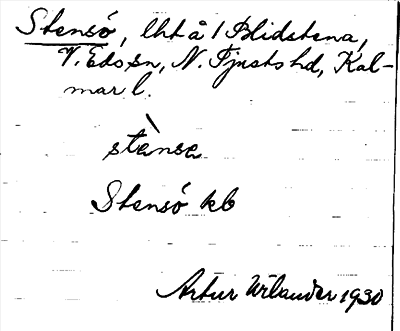 Stensö, lht å 1 Blidstena,
V. Eds sn, N. Tjusts hd, Kal-
mar l.
stènsa
Stensö kb
Artur Wilander 1930